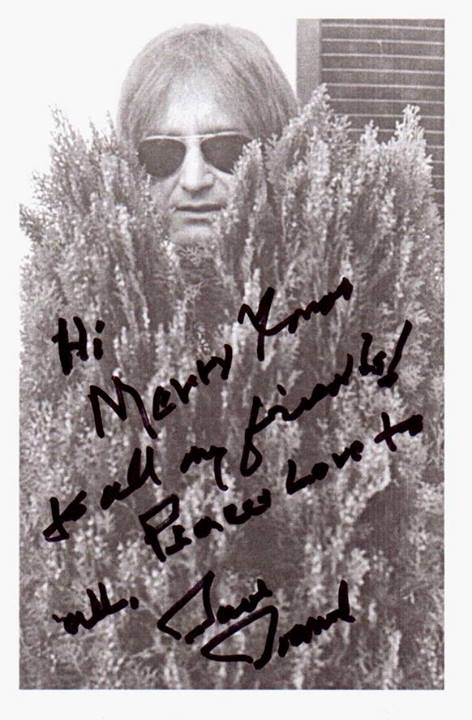 Hi
Merry Xmas
to all my friends!
Peace & Love to
all.
Dave